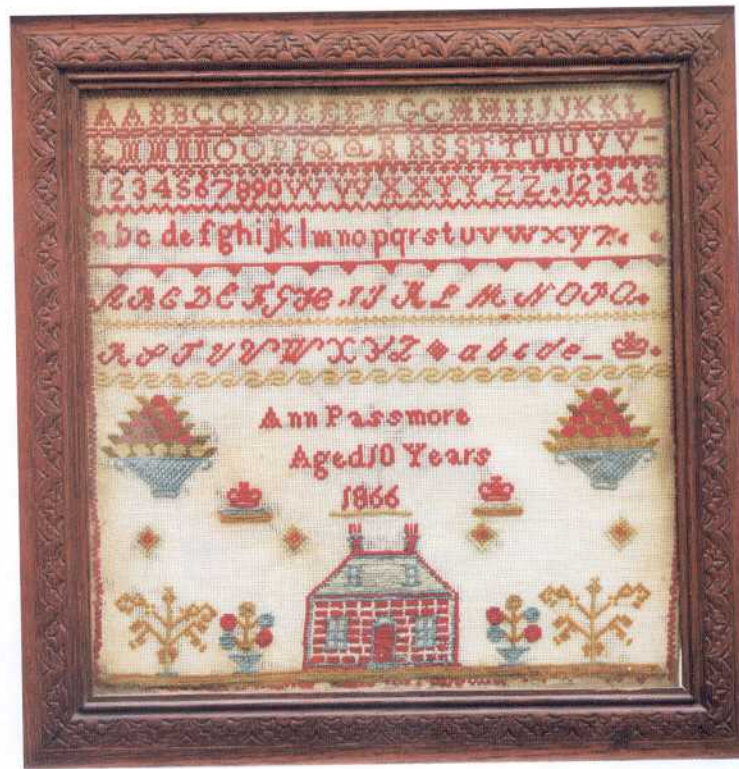 AABBCCDDEEFFGGHHIIJJKKL
LMMNNOOPPQQRRSSTTUUVV-
1234567890WWXXYYZZ.12345
abcdefghijklmnopqrstuvwxyz.
ABCDEFGHIJKLMNOPQ.
RSTUVWXYZabcde_
Ann Passmore
Aged 10 Years
1866